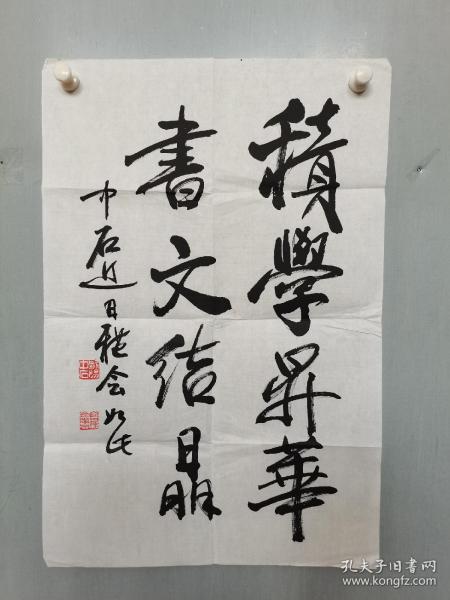 積學昇華
書文结晶
中石近日體会如此
孔夫子旧书网
www.kongfz.com